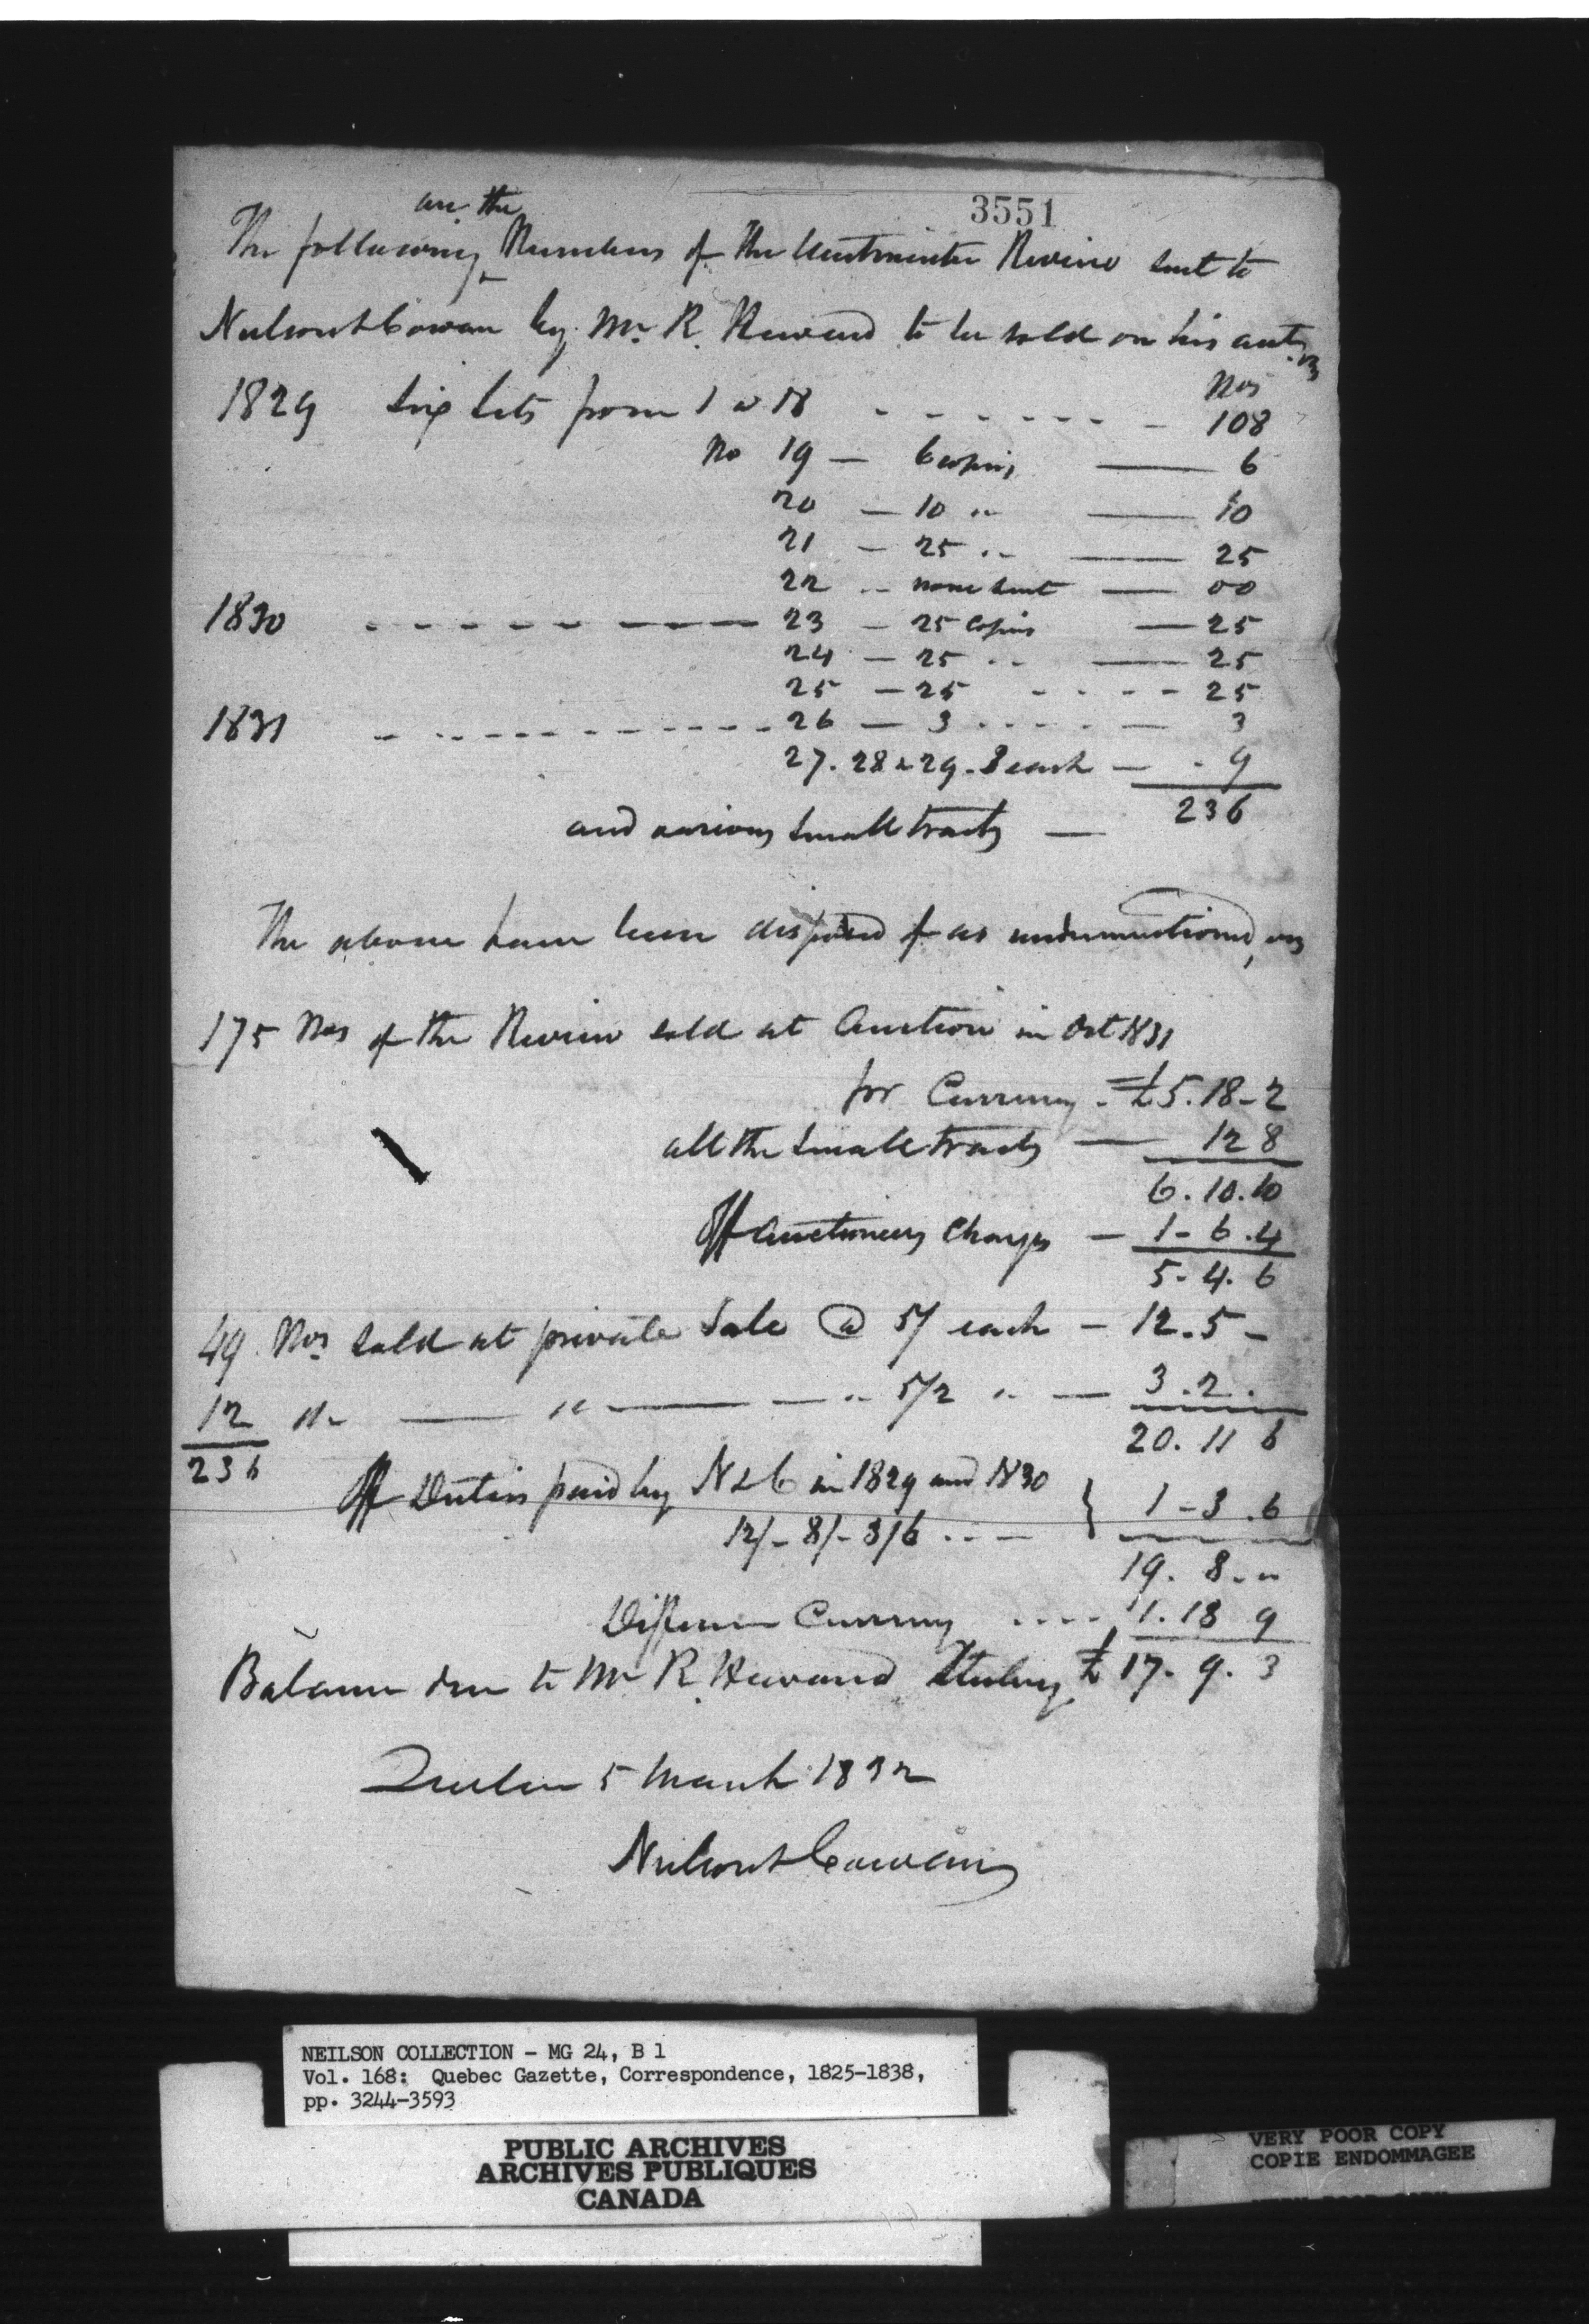 3551
are the
The following Numbers of the Westminster Review sent to
Neilson & Cowan by Mr. R. Heward to be sold on his acct. viz
Nos
1829 Six Sets from 1 a 18 - - - - - - - 108
No 19 — 6 copies — 6
20 — 10 " — 10
21 — 25 " — 25
22 " none sent — 00
1830 - - - - - - - 23 — 25 Copies — 25
24 — 25 " — 25
25 — 25 - - - - 25
1831 - - - - - - - 26 — 3 - - - - — 3
27. 28 & 29. 3 each — 9
236
and various small tracts —
The above have been disposed of as undermentioned, viz
175 Nos of the Review sold at Auction in Oct 1831
for Currency - £5. 18 - 2
all the small tracts — 12 8
6. 10. 10
Off Auctioneers Charges — 1 - 6. 4
5 - 4. 6
49 Nos sold at private Sale @ 5/ each — 12. 5 -
12 " — " — " 5/2 " — 3. 2.
236
20. 11 6
Off Duties paid by N & C in 1829 and 1830 } 1 - 3. 6
12/ - 8/ - 3/6 - - -
19. 8. "
Difference Currency - - - - 1. 18 9
Balance due to Mr R. Heward Sterling £ 17. 9. 3
Quebec 5 March 1832
Neilson & Cowan
NEILSON COLLECTION - MG 24, B 1
Vol. 168: Quebec Gazette, Correspondence, 1825-1838,
pp. 3244-3593
PUBLIC ARCHIVES
ARCHIVES PUBLIQUES
CANADA
VERY POOR COPY
COPIE ENDOMMAGEE